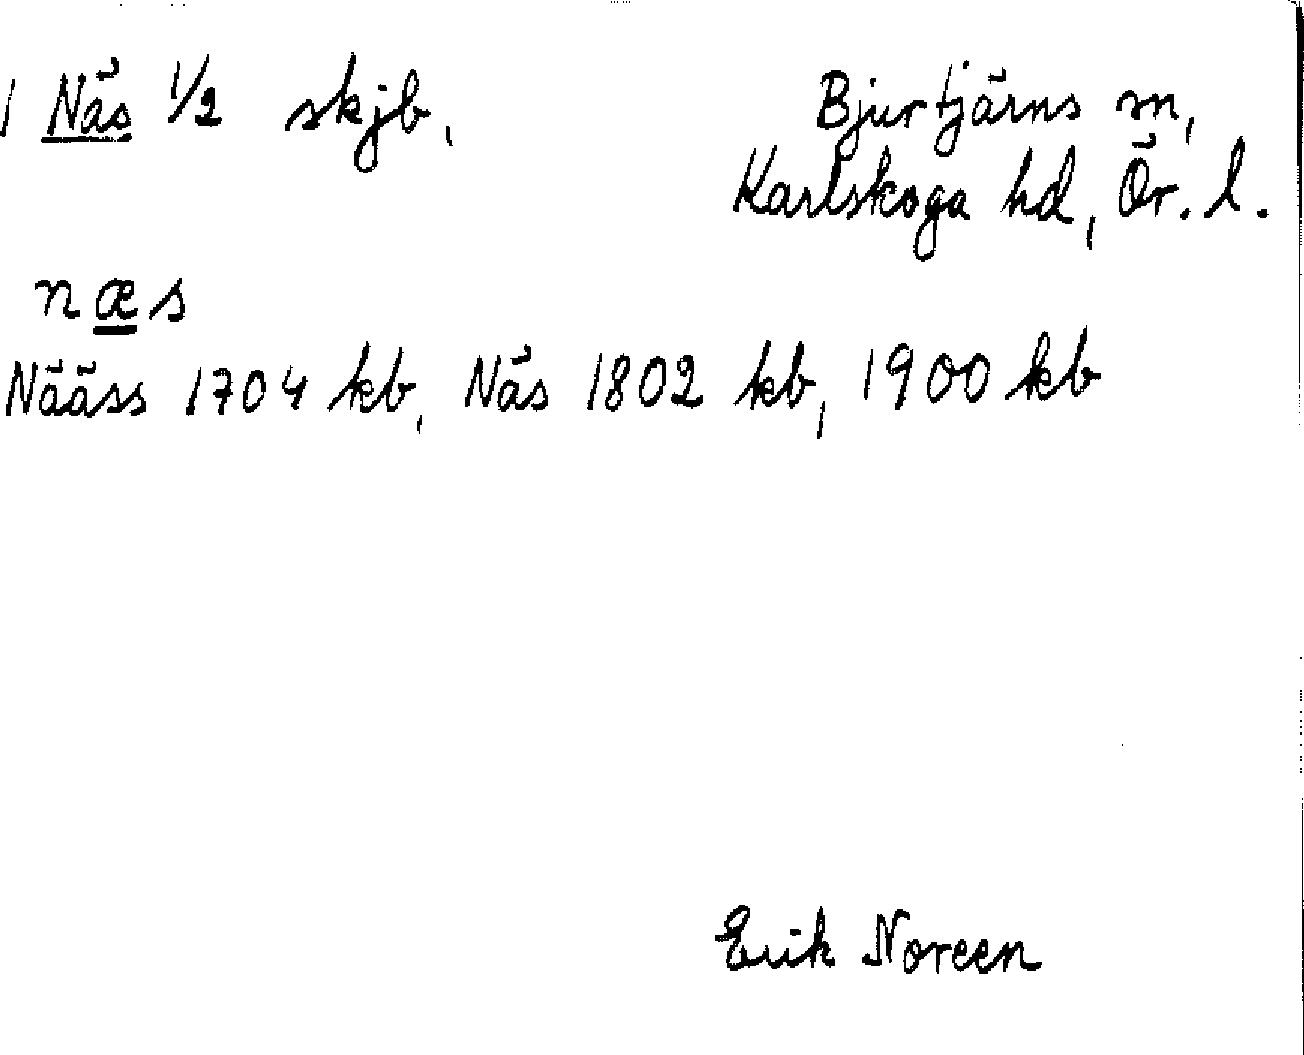 1 Näs 1/2 skjb,
Bjurtjärns sn,
Karlskoga hd, Ör. l.
næs
Nääss 1704 kb, Näs 1802 kb, 1900 kb
Erik Noreen